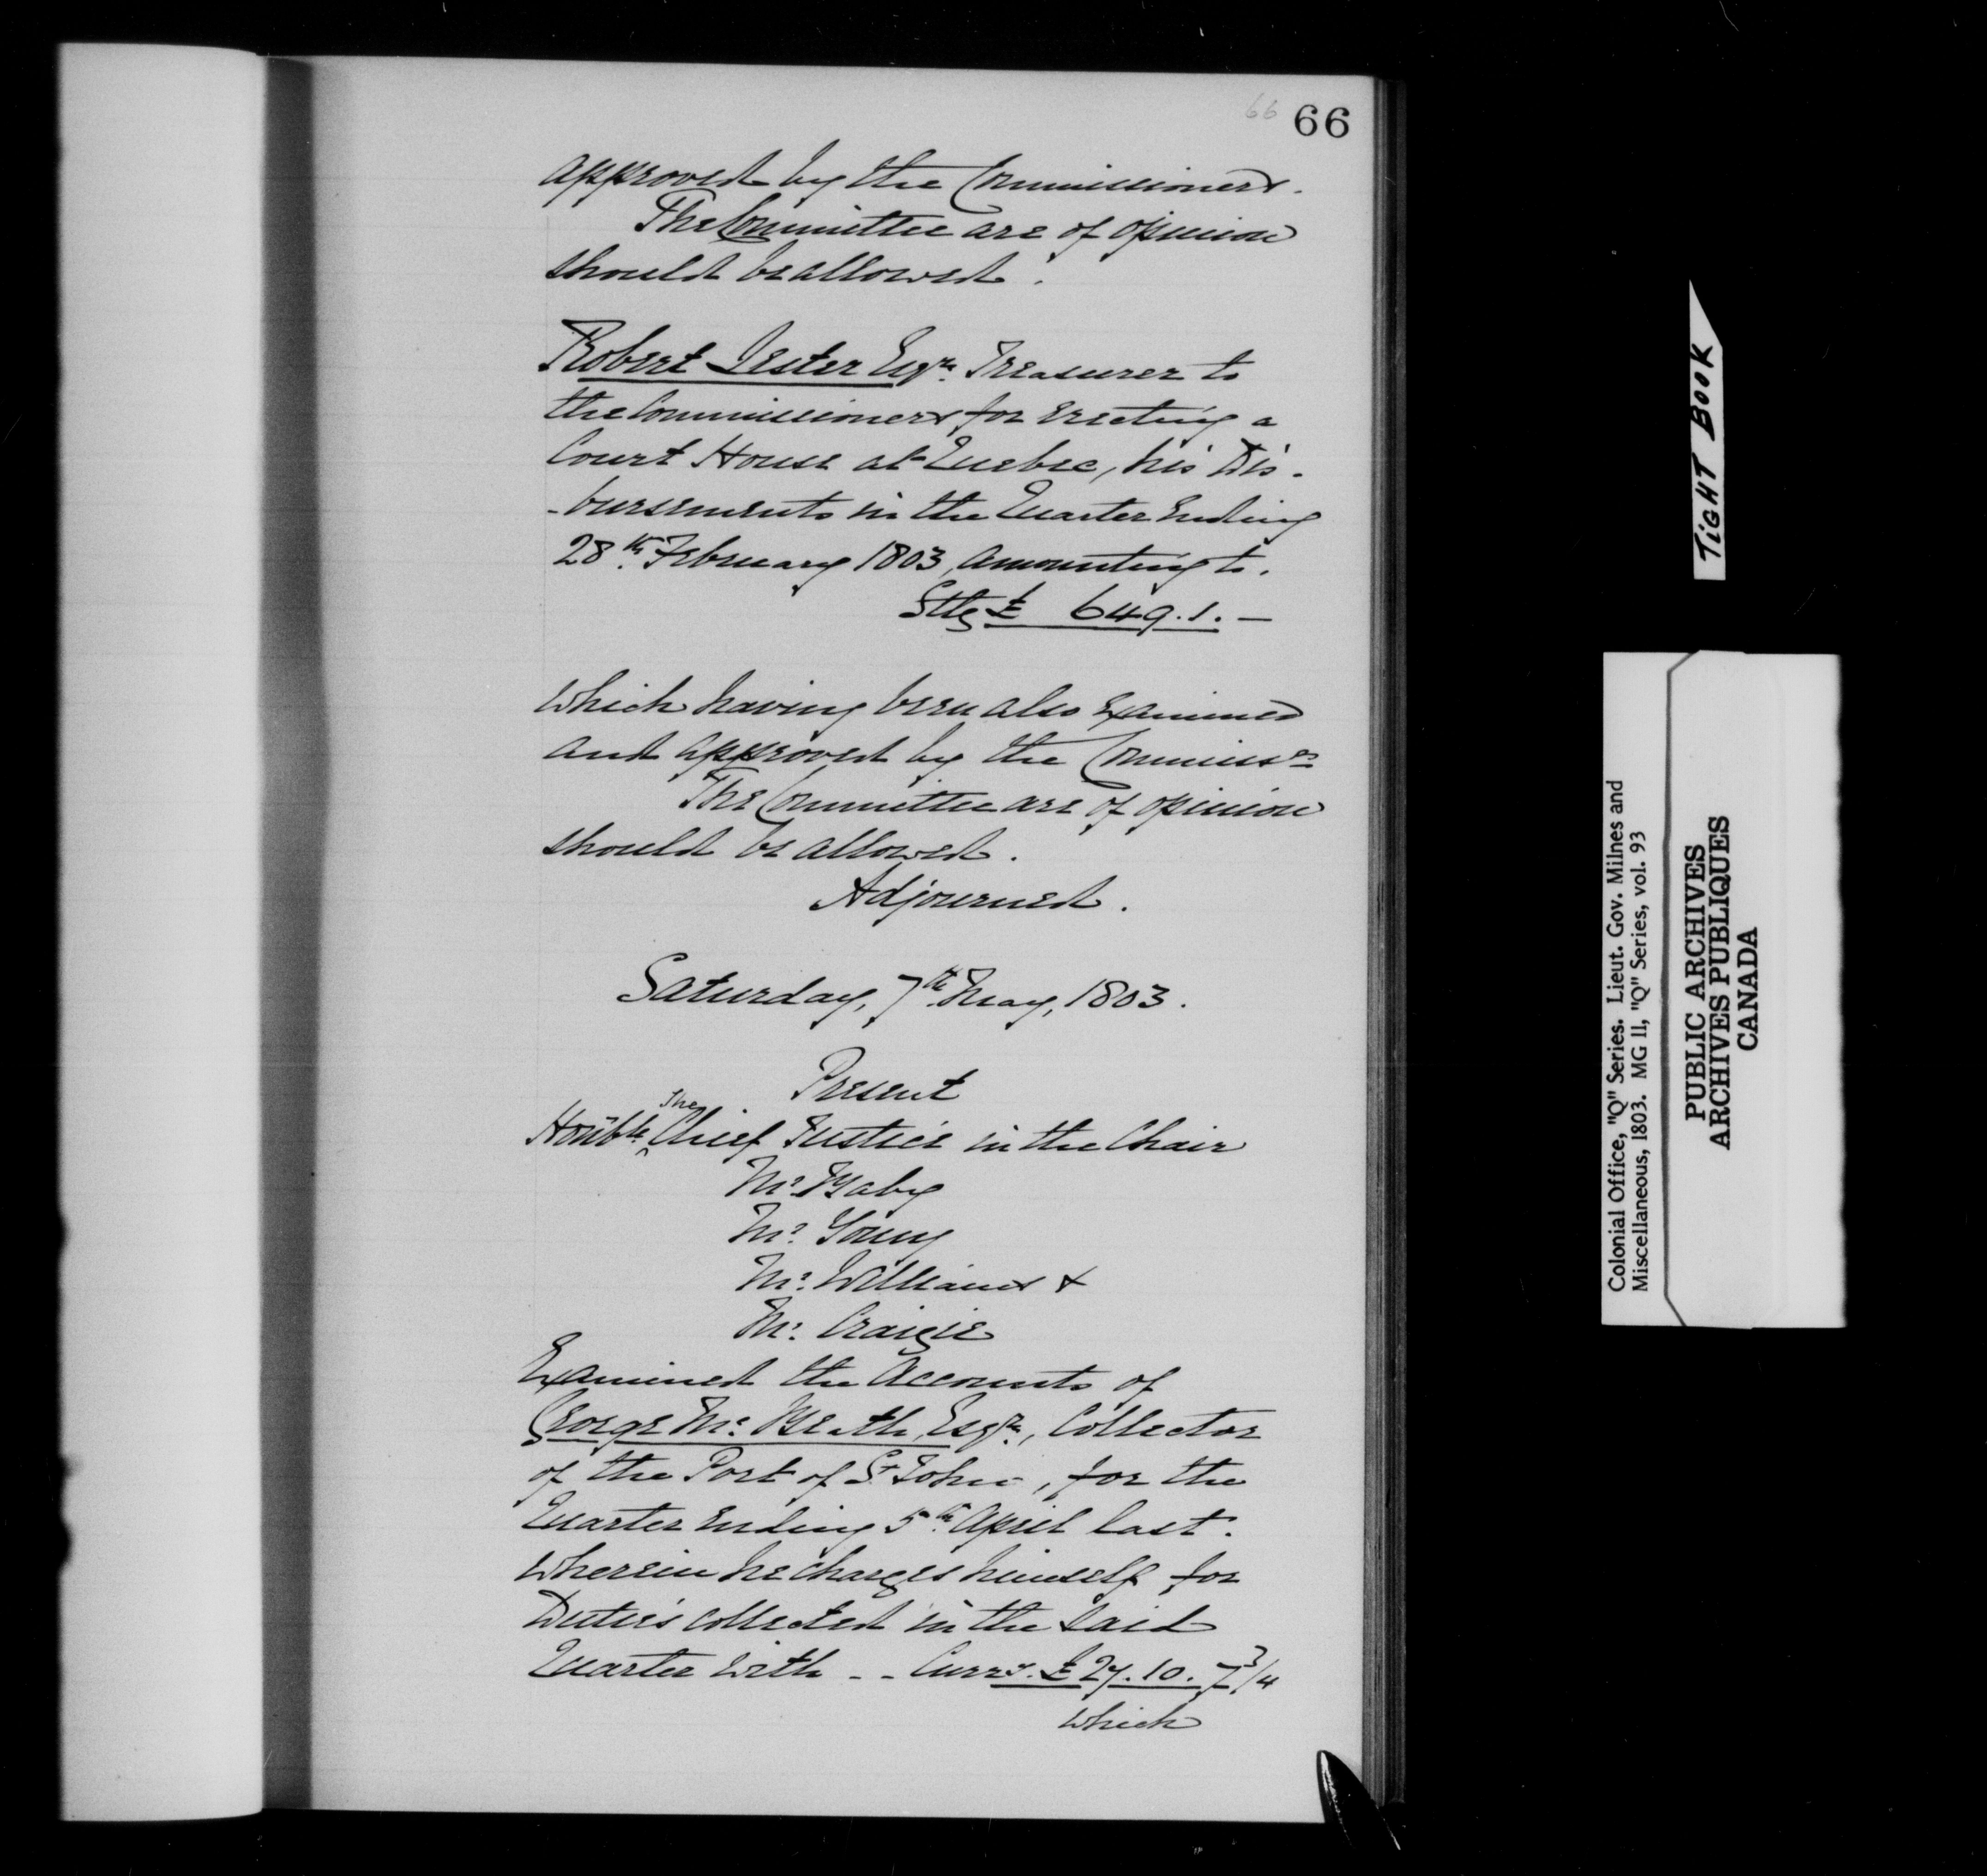 66 66
approved by the Commissioners.
The Committee are of opinion
should be allowed.
Robert Lester Esqre. Treasurer to
the Commissioners for erecting a
Court House at Quebec, his Dis-
-bursements in the Quarter Ending
28th. February 1803, amounting to.
Stlg £ 649.1.—
Which having been also Examined
and approved by the Commissrs
The Committee are of opinion
should be allowed.
Adjourned.
Saturday, 7th May, 1803.
Present
Honble. The Chief Justice in the Chair
Mr. Baby
Mr. Young
Mr. Williams &
Mr. Craigie
Examined the Accounts of
George McBeath, Esqre., Collector
of the Port of St John, for the
Quarter Ending 5th April last.
Wherein he charges himself for
Duties collected in the said
Quarter with -- Curry. £ 27.10.7 3/4
Which
TIGHT BOOK
Colonial Office, "Q" Series. Lieut. Gov. Milnes and
Miscellaneous, 1803. MG 11, "Q" Series, vol. 93
PUBLIC ARCHIVES
ARCHIVES PUBLIQUES
CANADA